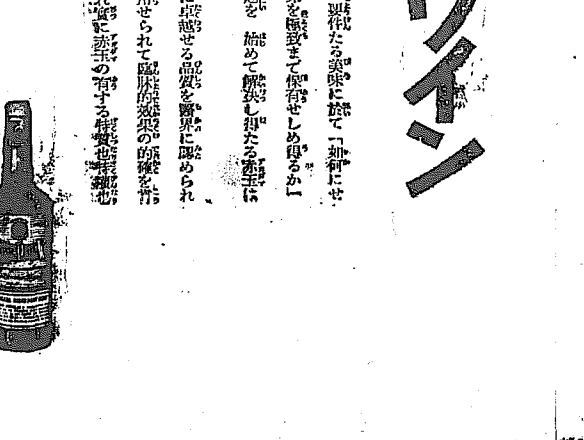 ワイン
要件たる美味に於て「如何にせ
を極致まで保有せしめ得るか」
を 始めて解決し得たる赤玉は
に卓越せる品質を醫界に認められ
用せられて臨牀的効果の的確を
質に赤玉の有する特質也特權也